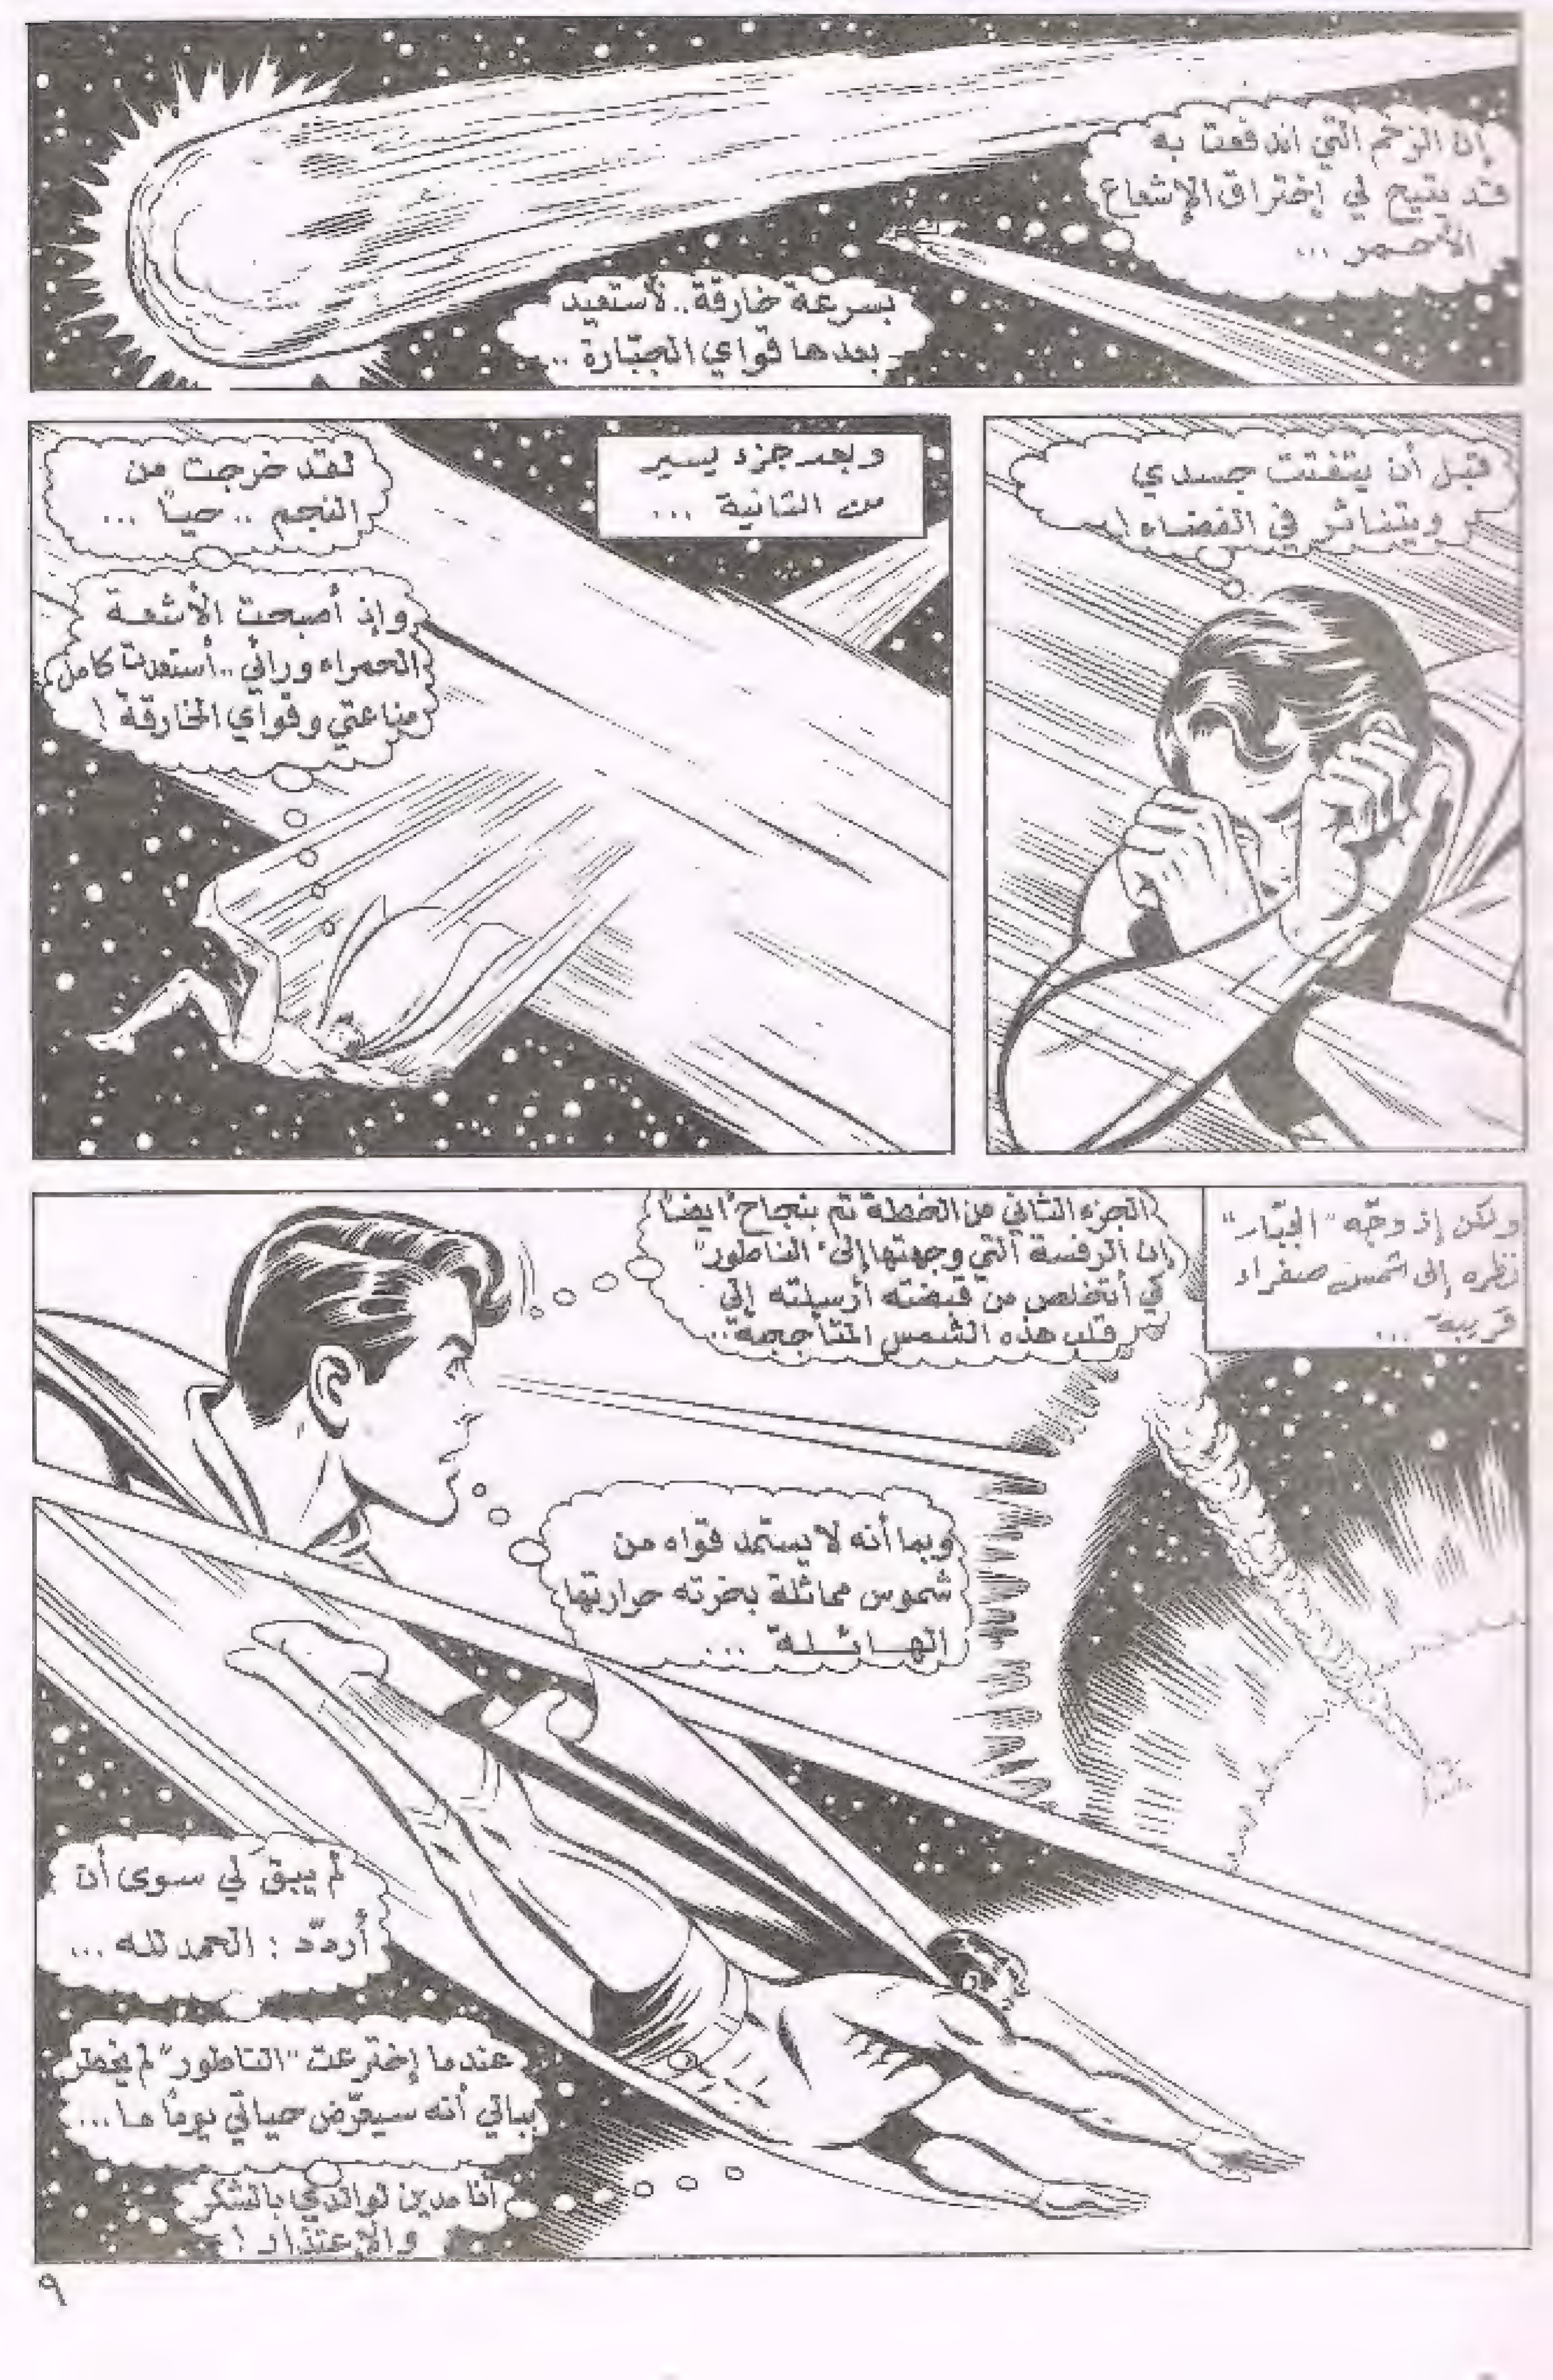 إن الزخم التي اندفعت به
قد يتيح لي إختراق الإشعاع
الأحمر ...
بسرعة خارقة.. لأستعيد
بعدها قواي الجبّارة ..
قبل أن يتفتت جسدي
ويتناثر في الفضاء !
وبعد جزء يسير
من الثانية ...
لقد خرجت من
النجم .. حياً ...
وإذ أصبحت الأشعة
الحمراء ورائي .. أستعدت كامل
مناعتي وقواي الخارقة !
ولكن إذ وجّه "الجبّار"
نظره إلى شمس صفراء
قريبة ...
الجزء الثاني من الخطة تم بنجاح ايضاً
إن الرفسة التي وجهتها إلى "الناطور"
كي أتخلص من قبضته أرسلته إلى
قلب هذه الشمس المتأججة ..
وبما أنه لا يستمد قواه من
شموس مماثلة بخرته حرارتها
الهائلة ...
لم يبق لي سوى أن
أردّد : الحمد لله ...
عندما إخترعت "الناطور" لم يخطر
ببالي أنه سيعرّض حياتي يوماً ما ...
أنا مدين لوالدي بالشكر
والإعتذار !
٩